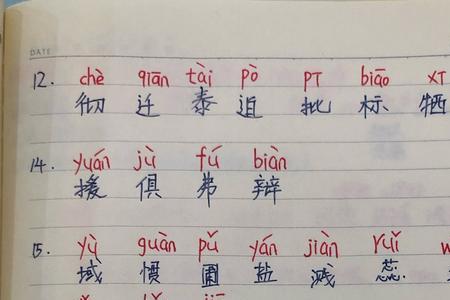 DATE
12. chè qiān tài pò pī biāo xī
彻 迁 泰 迫 批 标 牺
14. yuán jù fú biàn
援 俱 弗 辩
15. yù guàn pǔ yán jiàn ruǐ
域 惯 圃 盐 溅 蕊